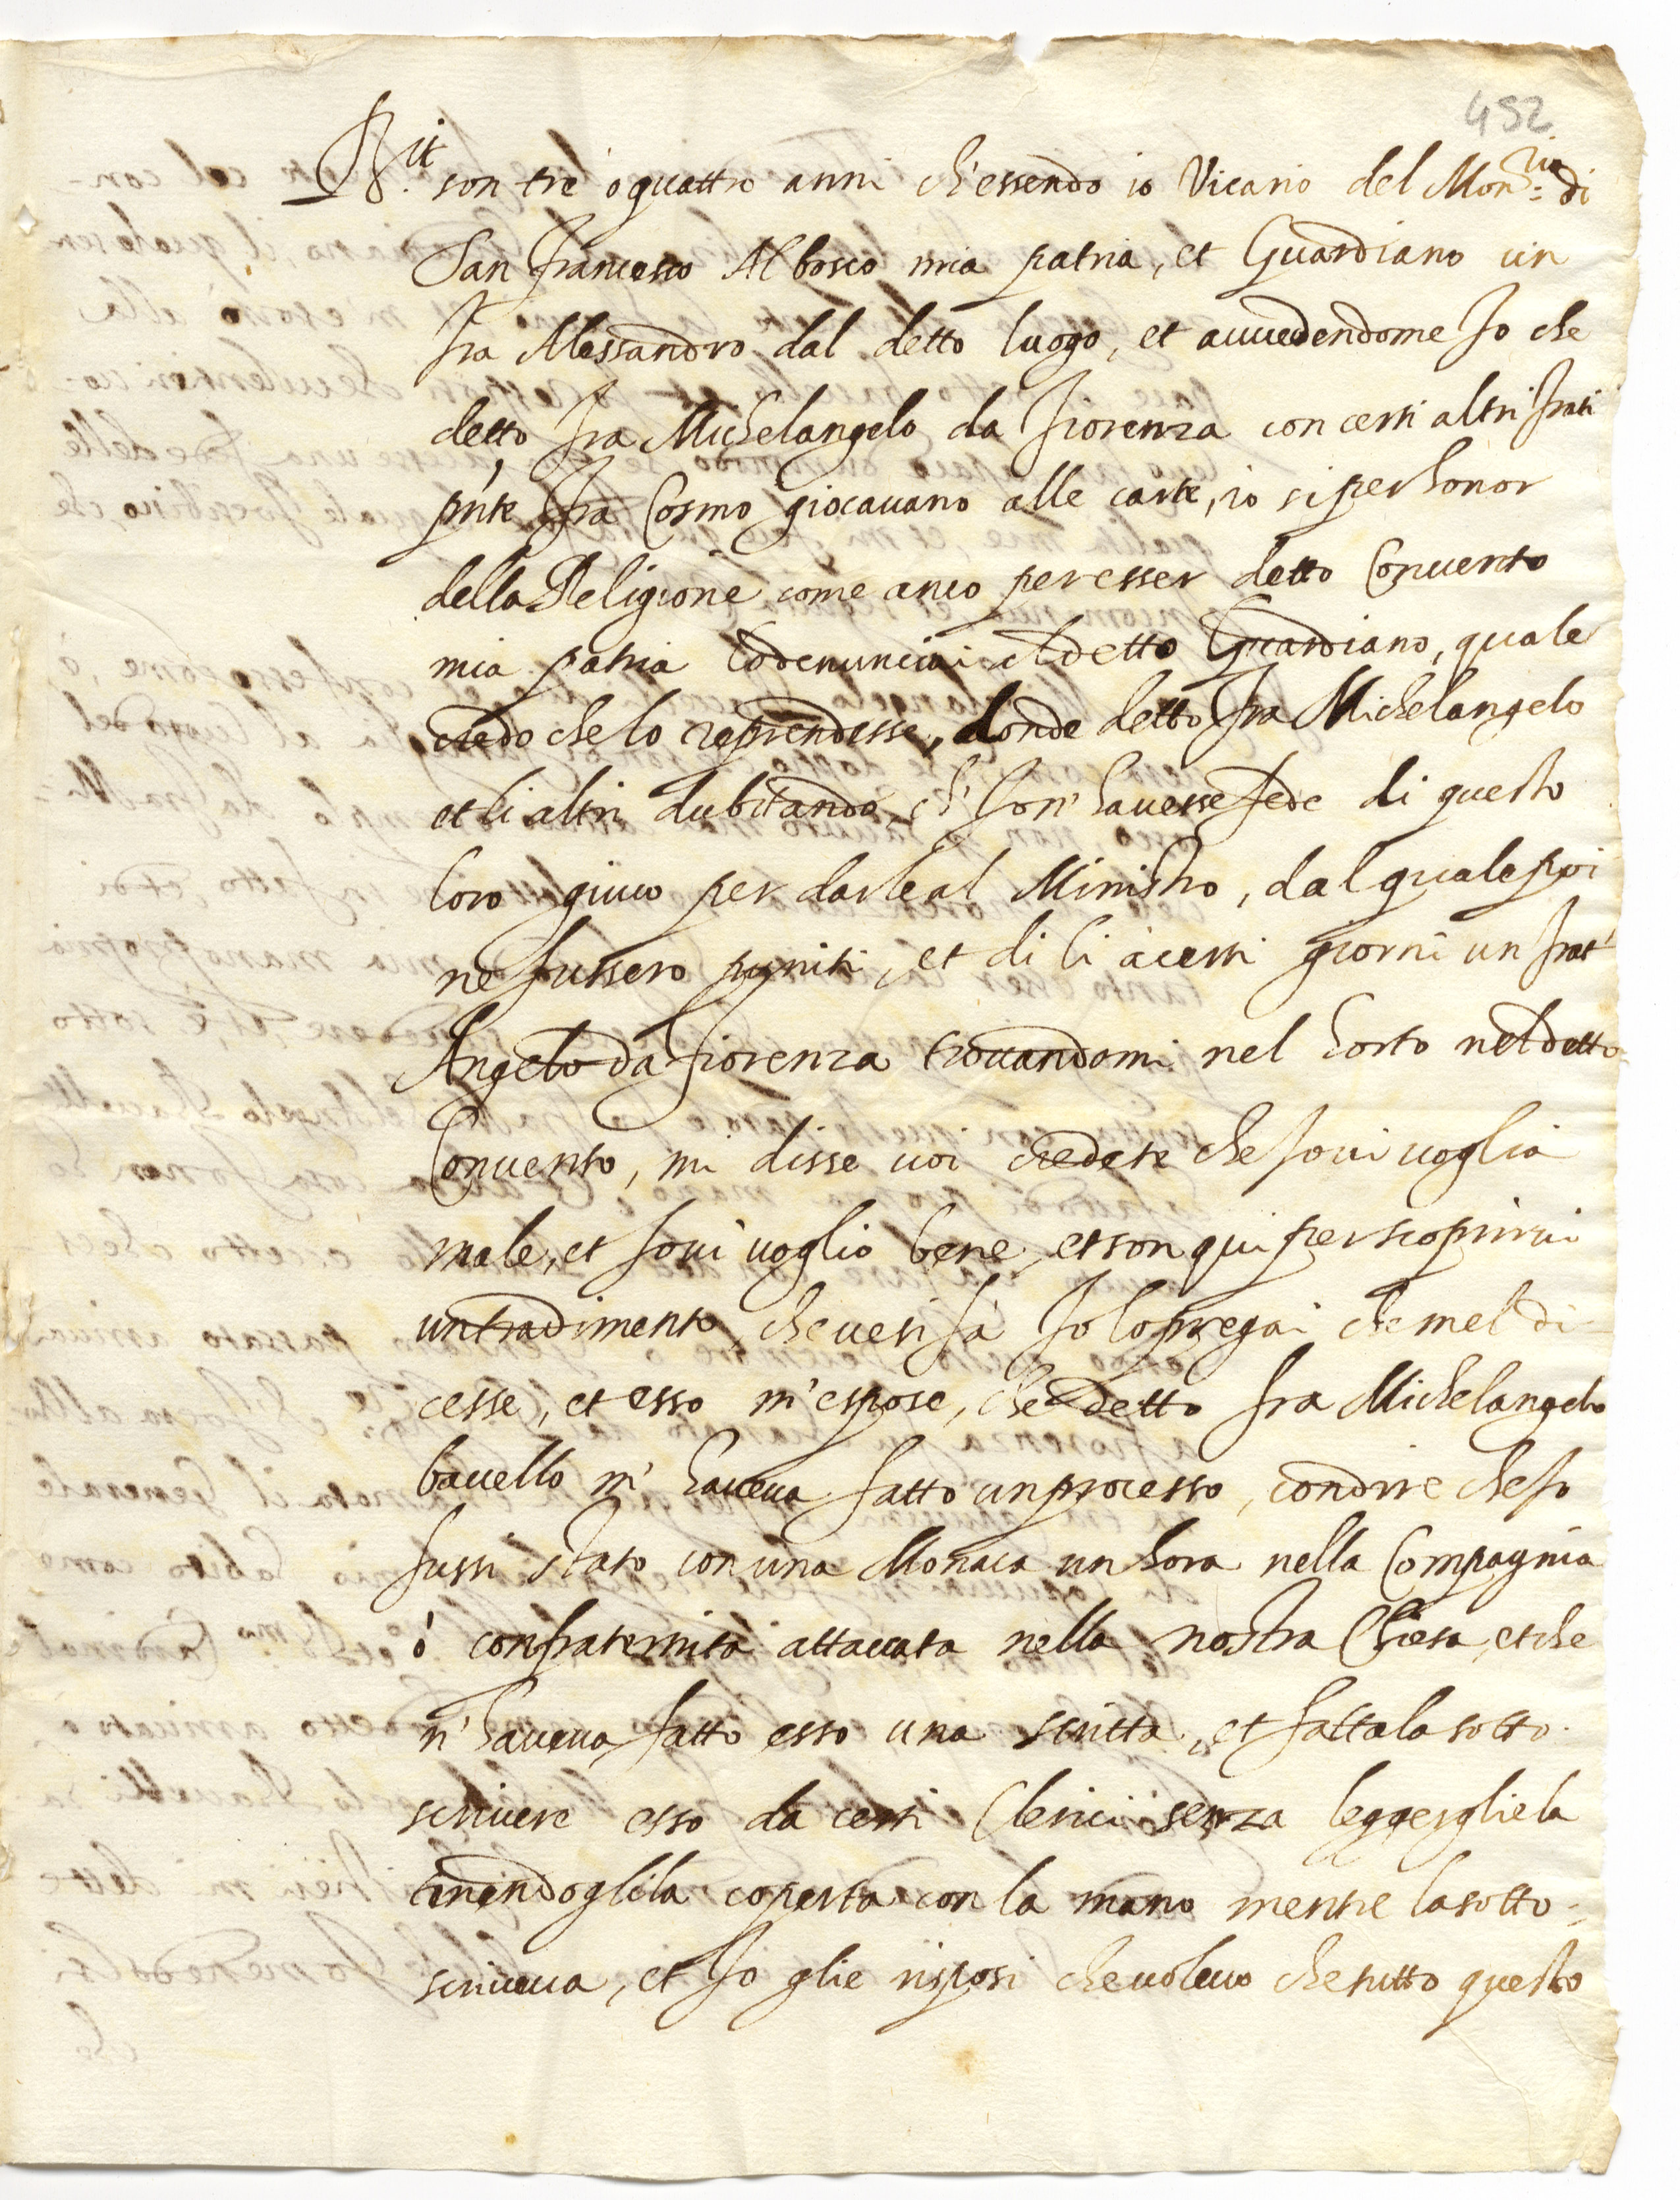 452
R.it son tre ò quattro anni ch'essendo io Vicario del Mon.rio di
San Francesco Al bosco mia patria, et Guardiano un
fra Alessandro dal detto luogo, et auuedendome Io che
detto fra Michelangelo da Fiorenza con certi altri frati
pnte fra Cosmo giocauano alle carte, io si per honor
della Religione come anco per esser detto Conuento
mia patria lo denunciai al detto Guardiano, quale
credo che lo reprendesse, donde detto fra Michelangelo
et li altri dubitando, ch' Io n' hauesse fede di questo
loro giuco per darle al Ministro, dal quale poi
ne fussero puniti, et di li à certi giorni un frat'
Angelo da Fiorenza trouandomi nel horto nel detto
Conuento, mi disse uoi credete che Io ui uoglia
male, et Io ui uoglio bene, et son qui per scoprirui
un tradimento, che ue si fà Io lo pregai che mel di
cesse, et esso m'espose, che detto fra Michelangelo
bauello m' haueua fatto un processo, con dire che Io
fussi stato con una Monaca un hora nella Compagnia
ò confraternita attaccata nella nostra Chiesa, et che
n' haueua fatto esso una scritta, et fattala sotto
scriuere esso da certi Clerici senza leggergliela
tenendoglila coperta con la mano mentre la sotto=
scriueua, et Io glie risposi che uoleuo che tutto questo